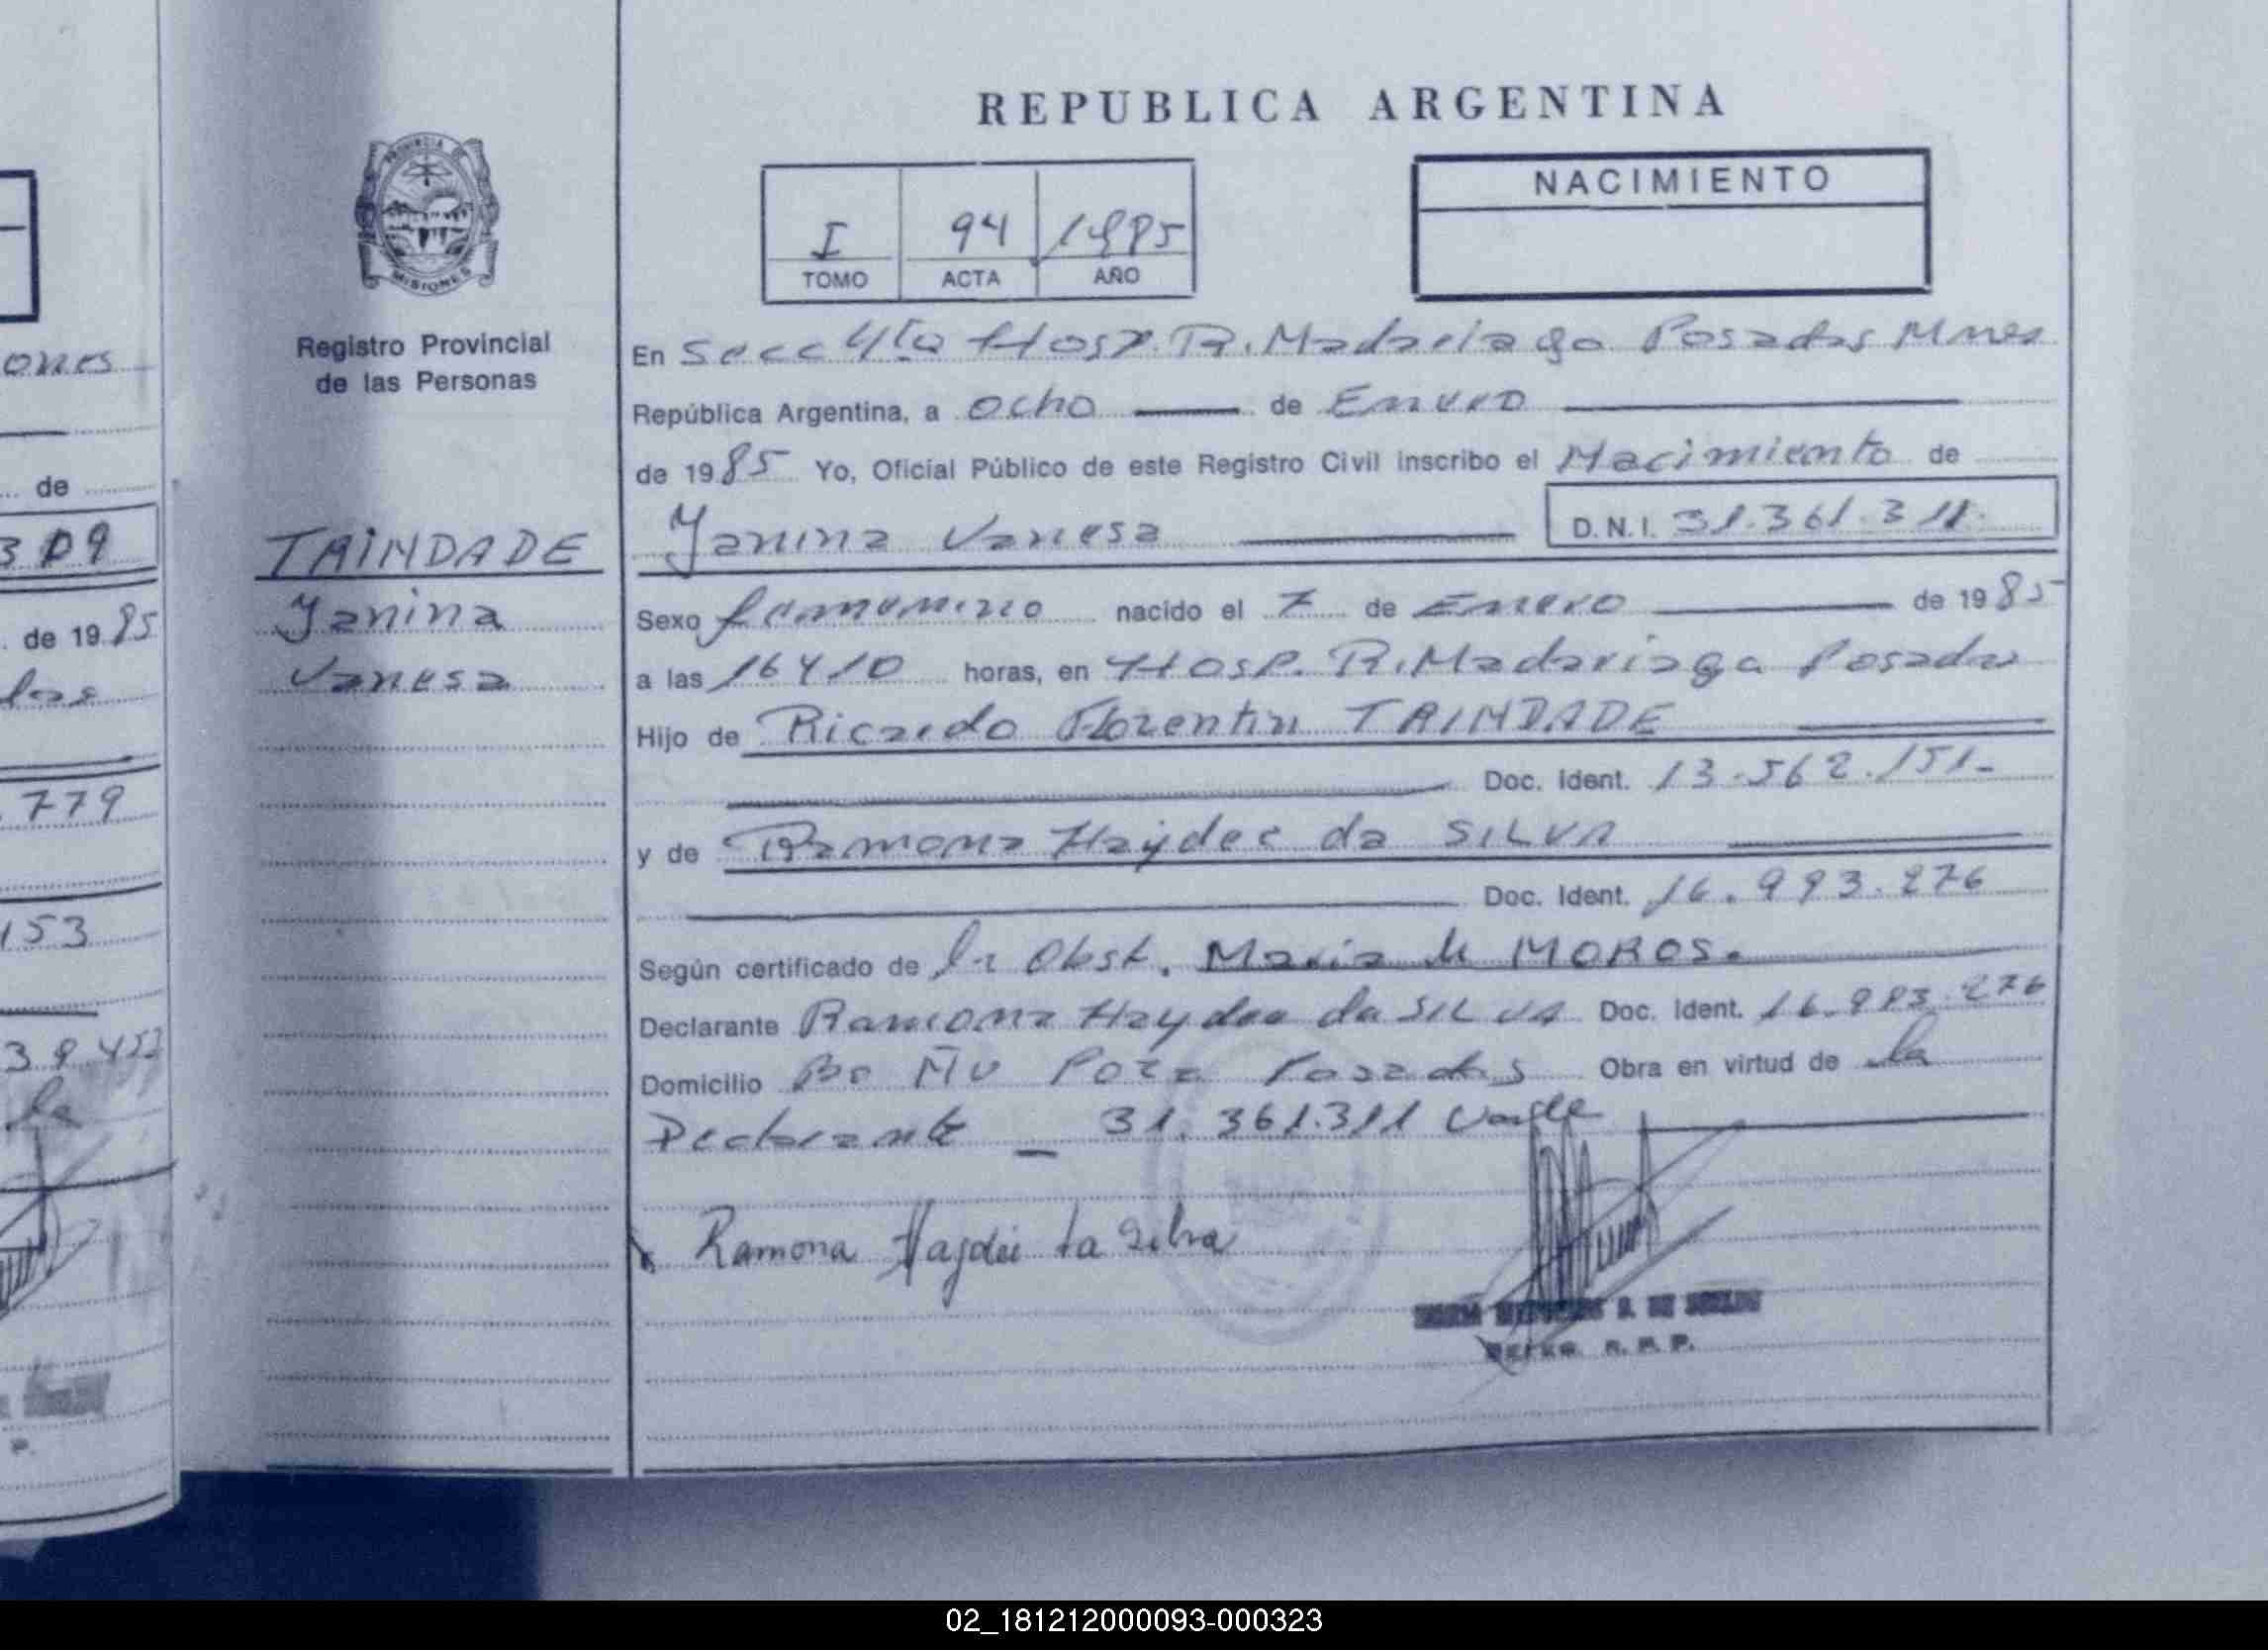 ones
de
309
de 1985
las
779
153
39.453
la
P.
PROVINCIA DE
MISIONES
Registro Provincial
de las Personas
TRINDADE
Yanina
Vanesa
REPUBLICA ARGENTINA
I 94 1985
TOMO ACTA AÑO
NACIMIENTO
En Secc 4ta Hosp. R. Madariaga Posadas Mnes
República Argentina, a ocho de Enero
de 1985 Yo, Oficial Público de este Registro Civil inscribo el Nacimiento de
Yanina Vanesa D.N.I. 31.361.311.
Sexo femenino nacido el 7 de Enero de 1985
a las 16 y 10 horas, en Hosp. R. Madariaga Posadas
Hijo de Ricardo Florentin TRINDADE
Doc. Ident. 13.562.151.
y de Ramona Haydee da SILVA
Doc. Ident. 16.993.276
Según certificado de la Obst. Maria M MOROS.
Declarante Ramona Haydee da SILVA Doc. Ident. 16.993.276
Domicilio Bo Ñu Pora Posadas Obra en virtud de la
Declarante _ 31.361.311 Vale
Ramona Haydee Da Silva
R. P. P.
02_181212000093-000323